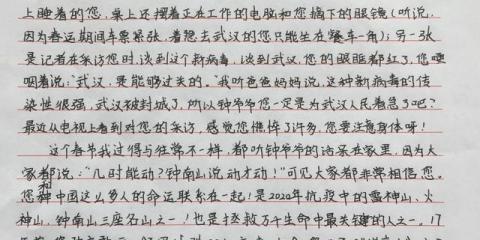 上睡着的您，桌上还摆着正在工作的电脑和您摘下的眼镜（听说，
因为春运期间车票紧张，着急去武汉的您只能坐在餐车一角）；另一张
是记者在采访您时，谈到这个新病毒，谈到武汉，您的眼眶都红了，您哽
咽着说："武汉，是能够过关的。"我听爸爸妈妈说，这种新病毒的传
染性很强，武汉被封城了，所以钟爷爷您一定是为武汉人民着急了吧？
最近从电视上看到对您的采访，感觉您憔悴了许多，您要注意身体呀！
这个春节我过得与往常不一样，都听钟爷爷的话呆在家里，因为大
家都说："几时能动？钟南山说动才动！"可见大家都非常相信您。
您和中国这么多人的命运联系在一起！是2020年抗疫中的雷神山、火
神山、钟南山三座名山之一！也是拯救万千生命中最关键的人之一。17